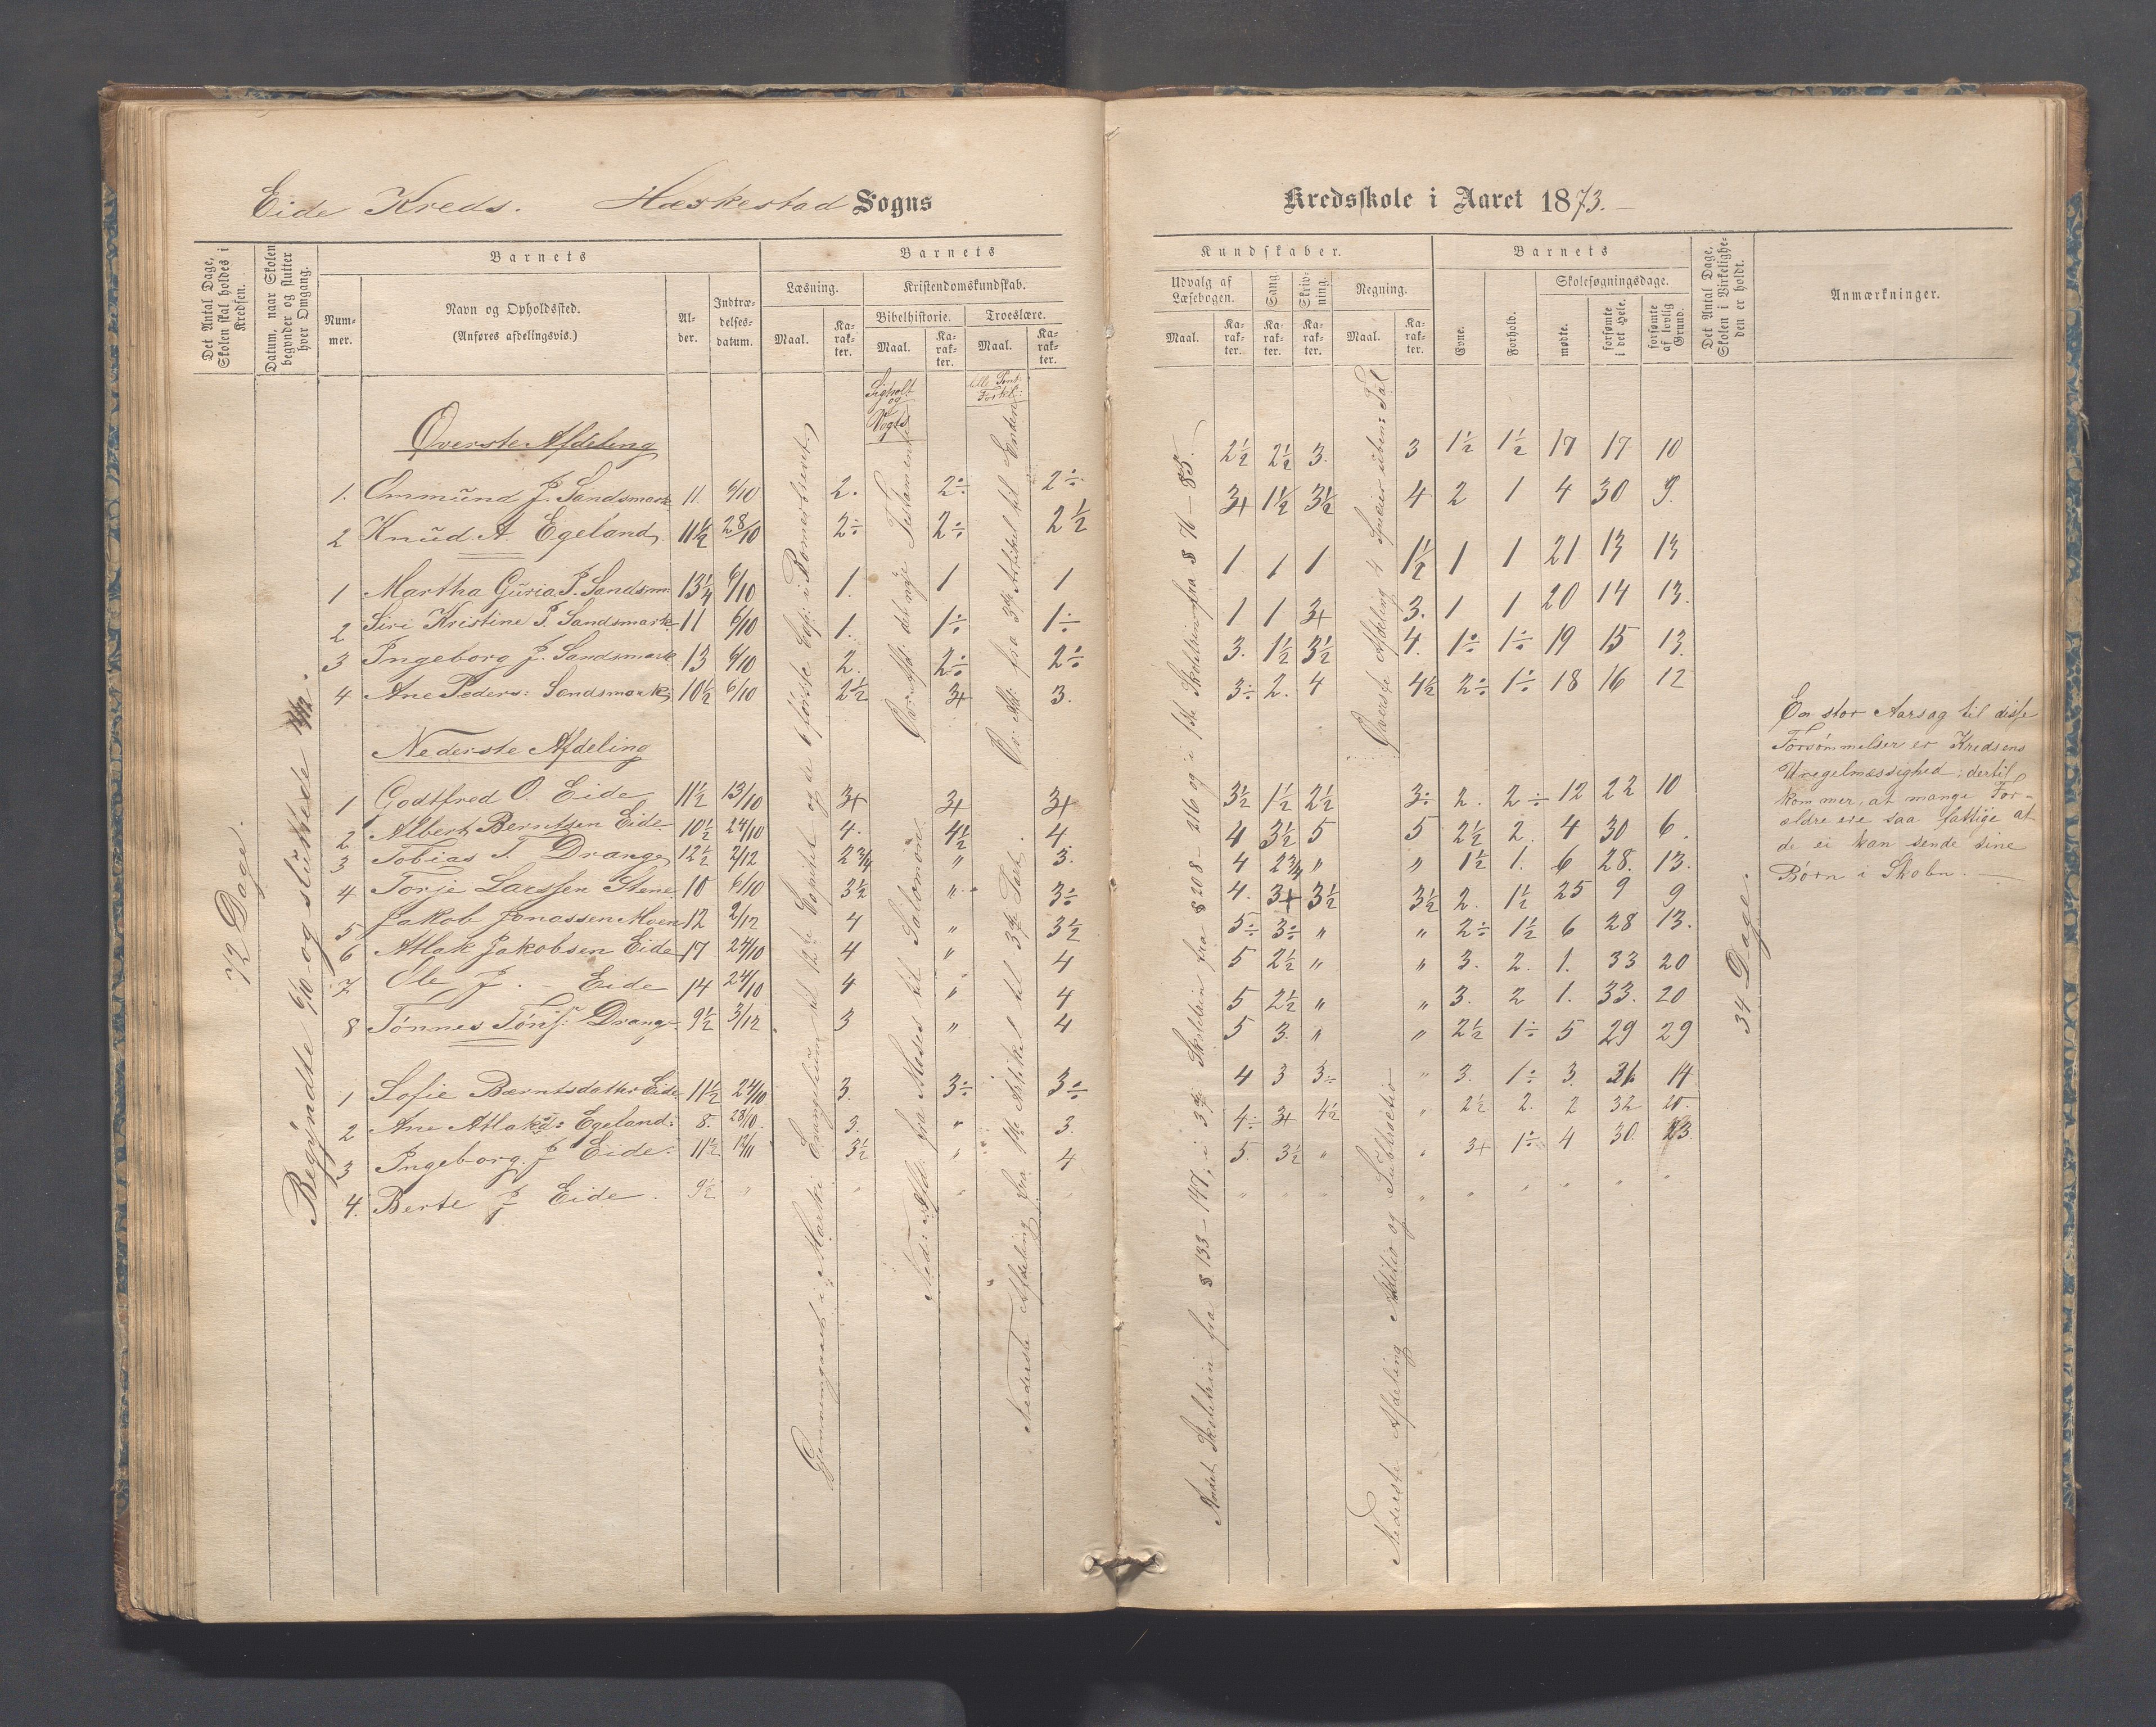 Eide Kreds. Heskestad Sogns
Kredsskole i Aaret 1873.
Det Antal Dage, Skolen skal holdes i Kredsen.
Datum, naar Skolen begynder og slutter hver Omgang.
Barnets
Num-mer.
Navn og Opholdssted.
(Anføres afdelingsvis.)
Al-der.
Indtræ-delses-datum.
Barnets
Læsning.
Kristendomskundskab.
Bibelhistorie.
Troeslære.
Maal.
Ka-rak-ter.
Maal.
Ka-rak-ter.
Maal.
Ka-rak-ter.
Kundskaber.
Udvalg af Læsebogen.
Sang.
Skriv-ning.
Regning.
Maal.
Ka-rak-ter.
Ka-rak-ter.
Ka-rak-ter.
Maal.
Ka-rak-ter.
Barnets
Evne.
Forhold.
Skolesøgningsdage.
mødte.
forsømte i det Hele.
forsømte af lovlig Grund.
Det Antal Dage, Skolen i Virkelighe-den er holdt.
Anmærkninger.
72 Dage.
Begyndte 6/10 og sluttede
og
Vogts
Øverste Afdeling
1. Ommund J. Sandsmark 11 6/10 2. 2÷ 2÷ 2½ 2½ 3. 3 1½ 1½ 17 17 10
2 Knud A. Egeland 11½ 28/10 2÷ 2÷ 2½ 3+ 1½ 3½ 4 2 1 4 30 9.
1 Martha Guria P. Sandsm. 13¼ 6/10 1. 1 1 1 1 1 1½ 1 1 21 13 13
2 Siri Kristine P. Sandsmark 11 6/10 1. 1÷ 1÷ 1 1 3+ 3. 1 1 20 14 13.
3 Ingeborg J. Sandsmark 13 6/10 2. 2÷ 2÷ 3. 1½ 3½ 4. 1÷ 1÷ 19 15 13.
4 Ane Peders: Sandsmark 10½ 6/10 2½ 3+ 3. 3÷ 2. 4 4½ 2÷ 1÷ 18 16 12
Nederste Afdeling
1 Godtfred O. Eide 11½ 13/10 3+ 3+ 3+ 3½ 1½ 2½ 3÷ 2. 2÷ 12 22 10
2 Albert Berntsen Eide 10½ 24/10 4. 4½ 4 4 3½ 5 5 2½ 2. 4 30 6.
3 Tobias T. Drange 12½ 2/12 2¾ " 3. 4 2¾ " " 1½ 1. 6 28. 13.
4 Torje Larssen Stene 10 6/10 3½ " 3÷ 4. 3+ 3½ 3½ 2. 1½ 25 9 9
5 Jakob Jonassen Moen 12 2/12 4 " 3½ 5÷ 3÷ " " 2÷ 1½ 6 28 13.
6 Atlak Jakobsen Eide 17 24/10 4 " 4 5 2½ " " 3. 2. 1. 33 20
7 Ole J. Eide 14 24/10 4 " 4 5 2½ " " 3. 2 1. 33. 20
8 Tønnes Tøris: Drange 9½ 3/12 3 " 4 5 3. " " 2½ 1÷ 5 29 29
1 Sofie Berntsdatter Eide 11½ 24/10 3. 3÷ 3÷ 4 3 3÷ " 3. 1÷ 3. 31 14
2 Ane Atlaksd: Egeland: 8. 28/10 3. " 3. 4÷ 3+ 4½ " 2½ 2. 2 32 20.
3 Ingeborg. J Eide. 11½ 12/11 3½ " 4 5. 3½ " " 3+ 1÷ 4 30. 23.
4. Berte J Eide. 9½ " " " " " " " " " " " "
Gjennemgaaet i Marki Evangelium til 12te Capitel og de 6 første Cap: i Romerbrevet
Øv: Afd: det nye Testamente
Ned: Afd: fra Moses til Salomon.
Øv: Afd: fra 3die Artikel til Enden
Nederste Afdeling fra 1ste Artikel til 3die Part.
Andet Skoletrin fra § 133-147, i 3die Skoletrin fra § 208-216 og i 1ste Skoletrin fra § 76-85.
Øverste Afdeling 4 Specier i uben: Tal
Nederste Afdeling Additio og Subtractio
34 Dage.
En stor Aarsag til disse
Forsømmelser er Kredsens
Uregelmæssighed; dertil
kommer, at mange For-
ældre ere saa fattige at
de ei kan sende sine
Børn i Skolen.